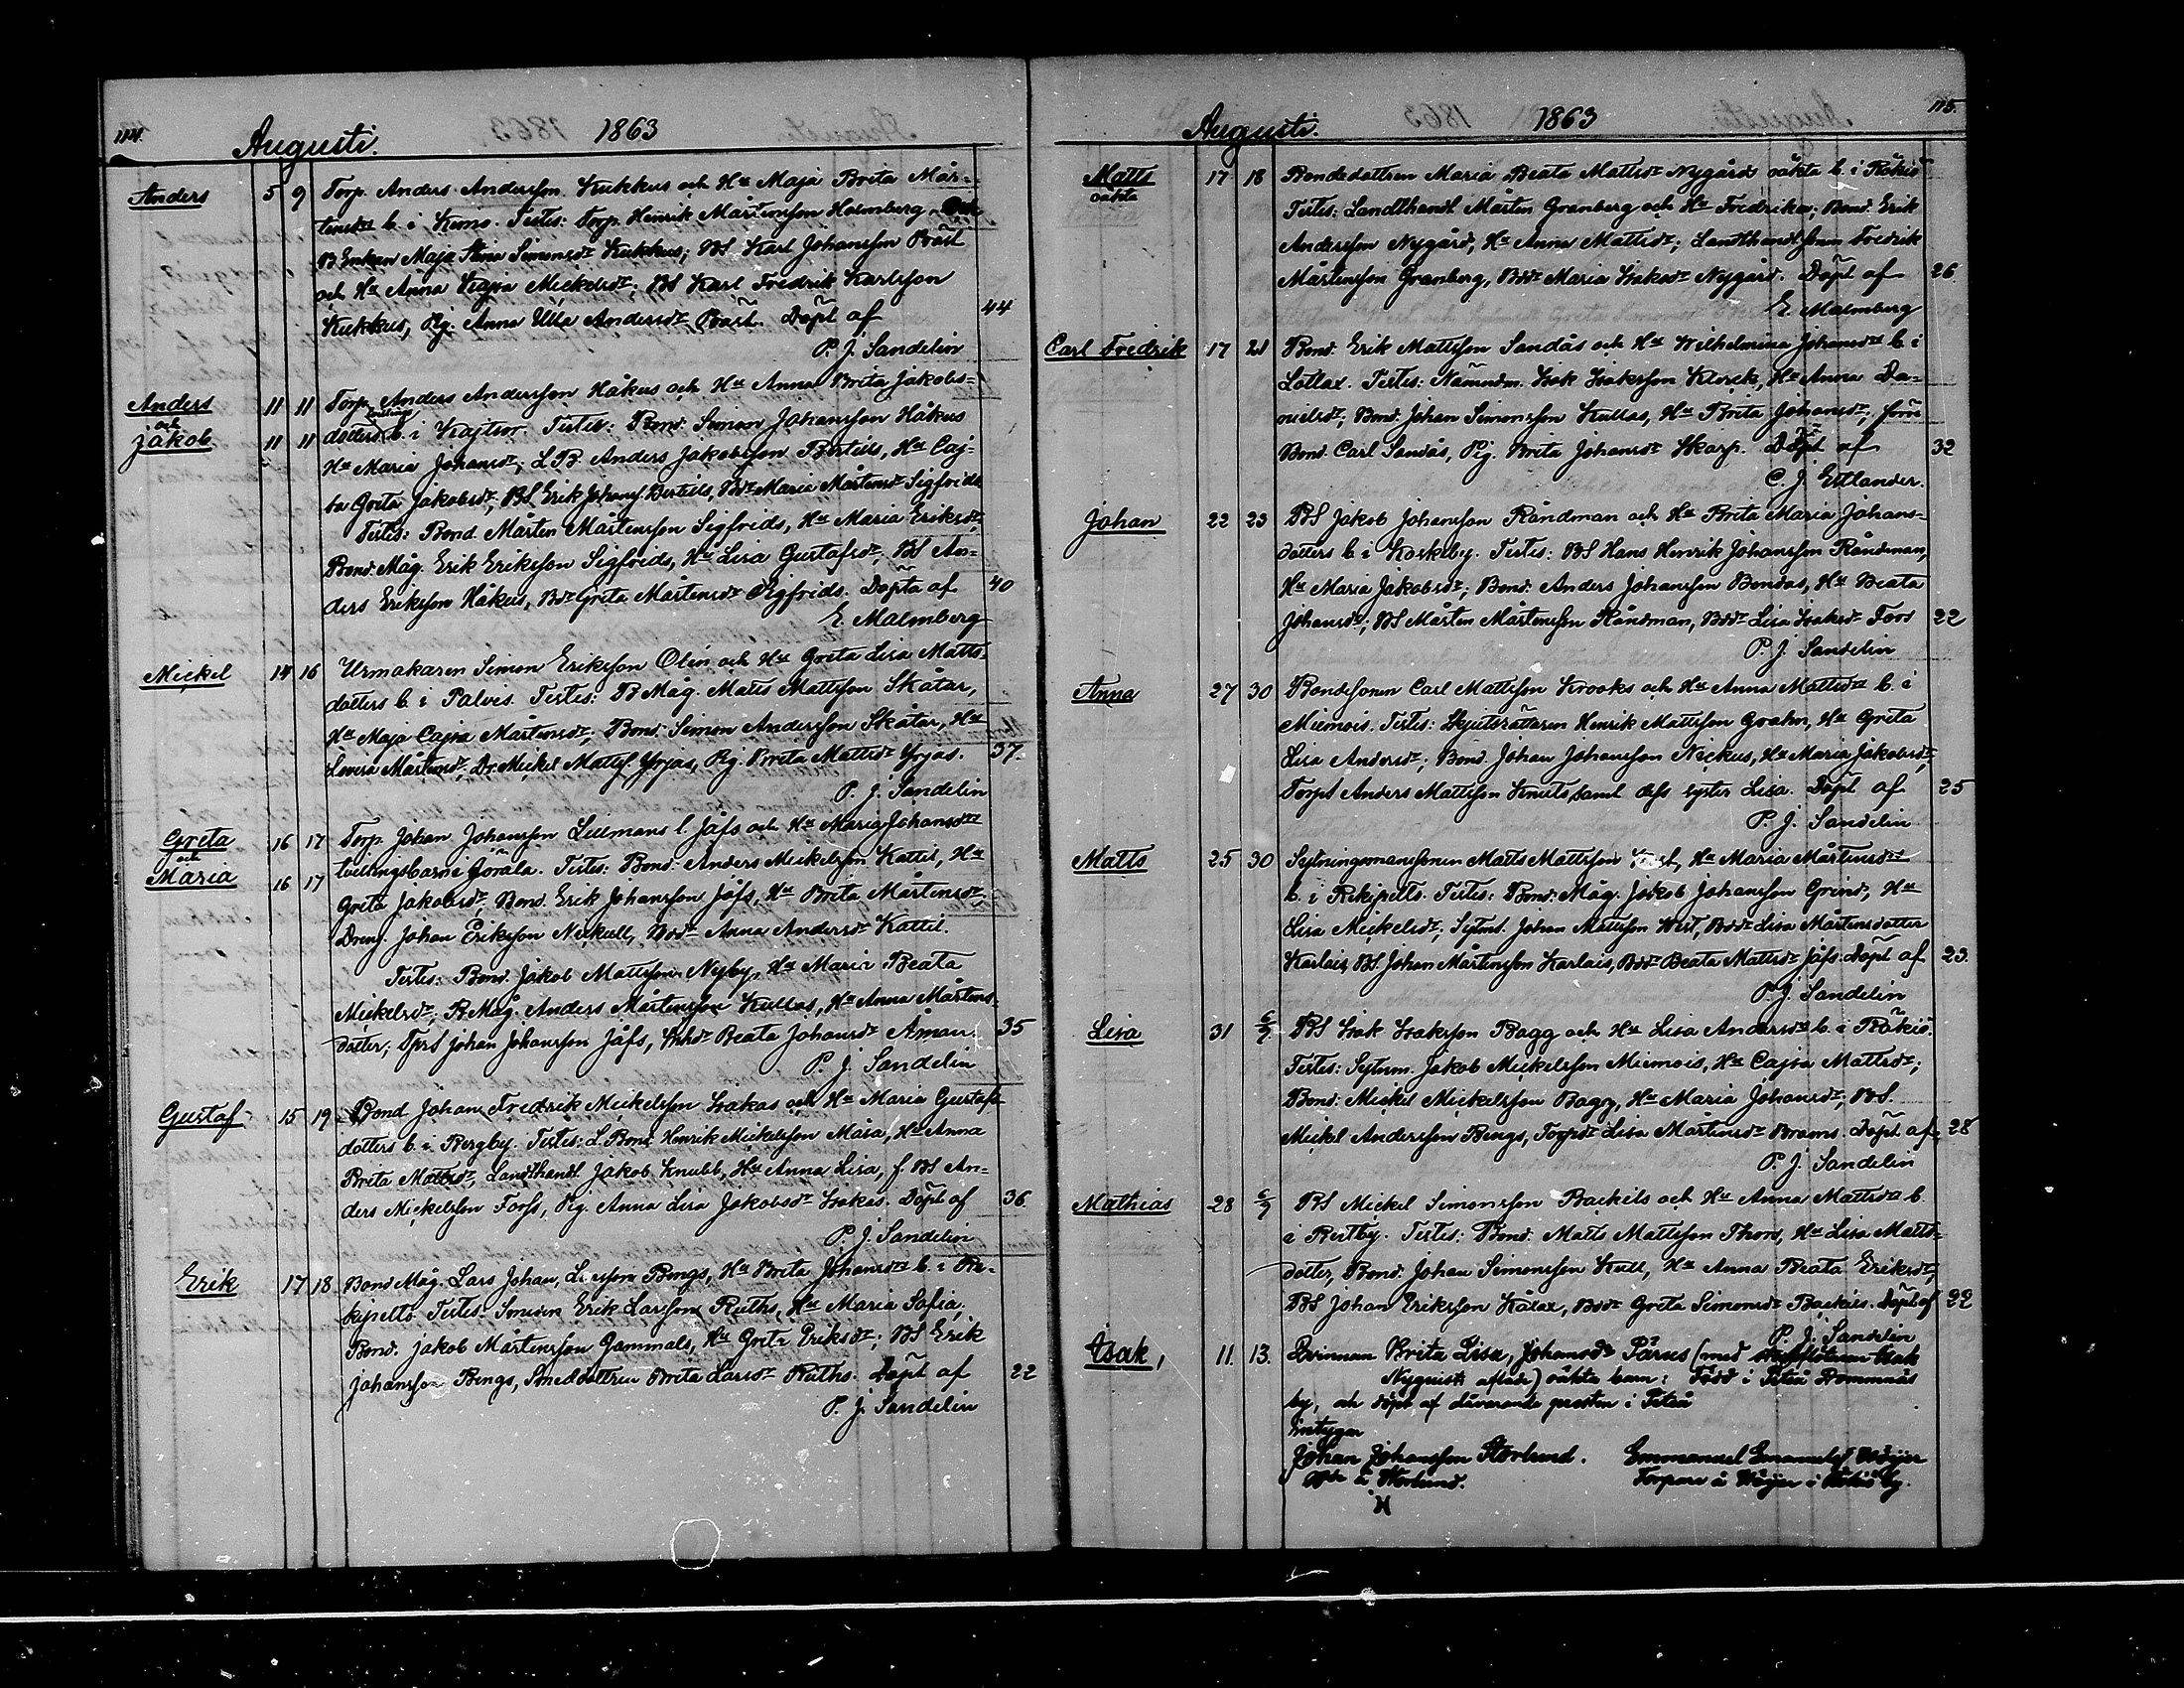 114.
Augusti. 1863
Anders 5 9 Torp. Anders Andersson Kukkus och Hu Maja Brita Mår-
tensdr b. i Kimo. Testes: Torp. Henrik Mårtensson Holmberg
B Enkan Maja Stina Simonsdr Kukkus; BS Karl Johansson Präst
och Hu Anna Kajsa Mickelsdr; BS Karl Fredrik Karlsson
Kukkus, Pig. Anna Ulla Andersdr Präst. Döpt af 44
P. J. Sandelin
Anders 11 11 Torp. Anders Andersson Håkus och Hu Anna Brita Jakobs-
och
Jakob 11 11 dotters b. i Kaitsor. Testes: Bond. Simon Johansson Håkus
Hu Maria Johansdr; LB. Anders Jakobsson Bertils, Hu Caj-
sa Greta Jakobsdr; BS. Erik Johanss. Bertils, Bdr Maria Mårtensdr Sigfrids
Testes: Bond. Mårten Mårtensson Sigfrids, Hu Maria Eriksdr;
Bond. Måg. Erik Eriksson Sigfrids, Hu Lisa Gustafsdr; BS An-
ders Eriksson Håkus, Bdr Greta Mårtensdr Sigfrids. Döpta af 40
E. Malmberg
Mickel 14 16 Urmakaren Simon Eriksson Olin och Hu Greta Lisa Matts-
dotters b. i Palves. Testes: B Måg. Matts Mattsson Skåtar,
Hu Maja Cajsa Mårtensdr; Bond. Simon Andersson Skåtar, Hu
Lovisa Mårtensdr; Dr. Mickel Mattss. Yrjas, Pig. Brita Mattsdr Yrjas. 37.
P. J. Sandelin
Greta 16 17 Torp. Johan Johansson Lillmans l. Jåfs och Hu Maria Johansdrs
och
Maria 16 17 tvillingsbarn i Jörala. Testes: Bond. Anders Mickelsson Kattil, Hu
Greta Jakobsdr; Bond. Erik Johansson Jåfs, Hu Brita Mårtensdr;
Dreng. Johan Eriksson Nickull, Bdr Anna Andersdr Kattil.
Testes: Bond. Jakob Mattsson Nyby, Hu Maria Beata
Mickelsdr; B Måg. Anders Mårtensson Kullas, Hu Anna Mårtens-
dotter; TprS Johan Johansson Jåfs, Beata Johansdr Åman 35
P. J. Sandelin
Gustaf 15 19 Bond. Johan Fredrik Mickelsson Isakas och Hu Maria Gustafs-
dotters b. i Bergby. Testes: L. Bond. Henrik Mickelsson Masa, Hu Anna
Brita Mattsdr; Landthandl. Jakob Knubb, Hu Anna Lisa, f. BS An-
ders Mickelsson Forss, Pig. Anna Lisa Jakobsdr Isakas. Döpt af 36.
P. J. Sandelin
Erik 17 18 Bond Måg. Lars Johan Larsson Bengs, Hu Brita Johansdrs b. i Re-
kipelto. Testes: Smeden Erik Larsson Ruths, Hu Maria Sofia;
Bond. Jakob Mårtensson Gammals, Hu Greta Eriksdr; BS Erik
Johansson Bengs, Smeddottren Brita Larsdr Ruths. Döpt af 22
P. J. Sandelin
115.
Augusti. 1863
Matts 17 18 Bondedottren Maria Beata Mattsdr Nygårds oäkta b. i Rökiö
oäkta
Testes: Landthandl. Mårten Granberg och Hu Fredrika; Bond. Erik
Andersson Nygård, Hu Anna Mattsdr; Landthandl.sonen Fredrik
Mårtensson Granberg, Bdr Maria Isaksdr Nygård. Döpt af 26.
E. Malmberg
Carl Fredrik 17 21 Bond. Erik Mattsson Sandås och Hu Wilhelmina Johansdrs b. i
Lotlax. Testes: Nämndm. Isak Isaksson Klock, Hu Anna Da-
nielsdr; Bond. Johan Simonsson Kullas, Hu Brita Johansdr; förra
Bond. Carl Sandås, Pig. Brita Johansdr Skarp. Döpt af 32
C. J. Estlander.
Johan 22 23 BS Jakob Johansson Råndman och Hu Brita Maria Johans-
dotters b. i Koskeby. Testes: BS Hans Henrik Johansson Råndman,
Hu Maria Jakobsdr; Bond. Anders Johansson Bondas, Hu Beata
Johansdr; BS Mårten Mårtensson Råndman, Bdr Lisa Isaksdr Fors 22
P. J. Sandelin
Anna 27 30 Bondsonen Carl Mattsson Krooks och Hu Anna Mattsdrs b. i
Miemois. Testes: Skjutsrättaren Henrik Mattsson Grahn, Hu Greta
Lisa Andersdr; Bond. Johan Johansson Nickus, Hu Maria Jakobsdr;
TorpS Anders Mattsson Knuts, samt dess syster Lisa. Döpt af 25
P. J. Sandelin
Matts 25 30 Sytningsmanssonen Matts Mattsson, Hu Maria Mårtensdrs
b. i Rekipelto. Testes: Bond. Måg. Jakob Johansson Grind, Hu
Lisa Mickelsdr; Sytms. Johan Mattsson, Bdr Lisa Mårtensdotter
Karlais, BS. Johan Mårtensson Karlais, Bdr Beata Mattsdr Jåfs. Döpt af 23.
P. J. Sandelin
Lisa 31 6/9 BS Isak Isaksson Bagg och Hu Lisa Andersdrs b. i Rökiö.
Testes: Sytnm. Jakob Mickelsson Miemois, Hu Cajsa Mattsdr;
Bond. Mickel Mickelsson Bagg, Hu Maria Johansdr; BS.
Mickel Andersson Bengs, Torpdr Lisa Mårtensdr Brams. Döpt af 28
P. J. Sandelin
Mathias 28 6/9 BS Mickel Simonsson Backils och Hu Anna Mattsdrs b.
i Bertby. Testes: Bond. Matts Mattsson Thors, Hu Lisa Matts-
dotter, Bond. Johan Simonsson Kull, Hu Anna Beata Eriksdr;
BS Johan Eriksson Kålax, Bdr Greta Simonsdr Backils. Döpt af 22
P. J. Sandelin
Isak, 11. 13. Qvinnan Brita Lisa, Johansdr Pärus (med Isak
Nyquist aflade) oäkta barn; Född i Piteå
by, och döpt af dåvarande presten i Piteå
Intyga
Johan Johansson Storlund. Emmanuel
å Storlund. Torpare å i Rökiö by.